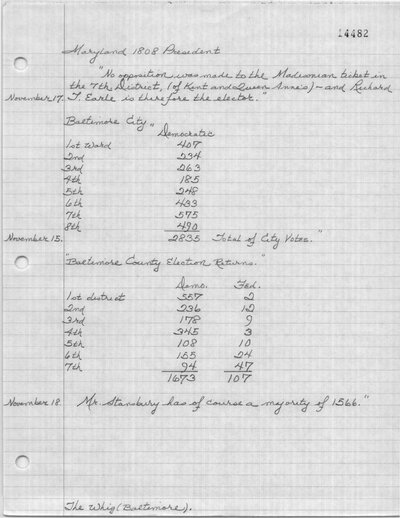 14482
Maryland 1808 President
"No opposition was made to the Madisonian ticket in
the 7th District, (of Kent and Queen Anne's) - and Richard
November 17. T. Earle is therefore the elector."
Baltimore City "Democratic
1st Ward 407
2nd 234
3rd 263
4th 185
5th 248
6th 433
7th 575
8th 490
November 15. 2835 Total of City Votes."
"Baltimore County Election Returns."
Demo. Fed.
1st district 557 2
2nd 236 12
3rd 178 9
4th 345 3
5th 108 10
6th 155 24
7th 94 47
1673 107
November 18. Mr. Stansbury has of course a majority of 1566."
The Whig (Baltimore).